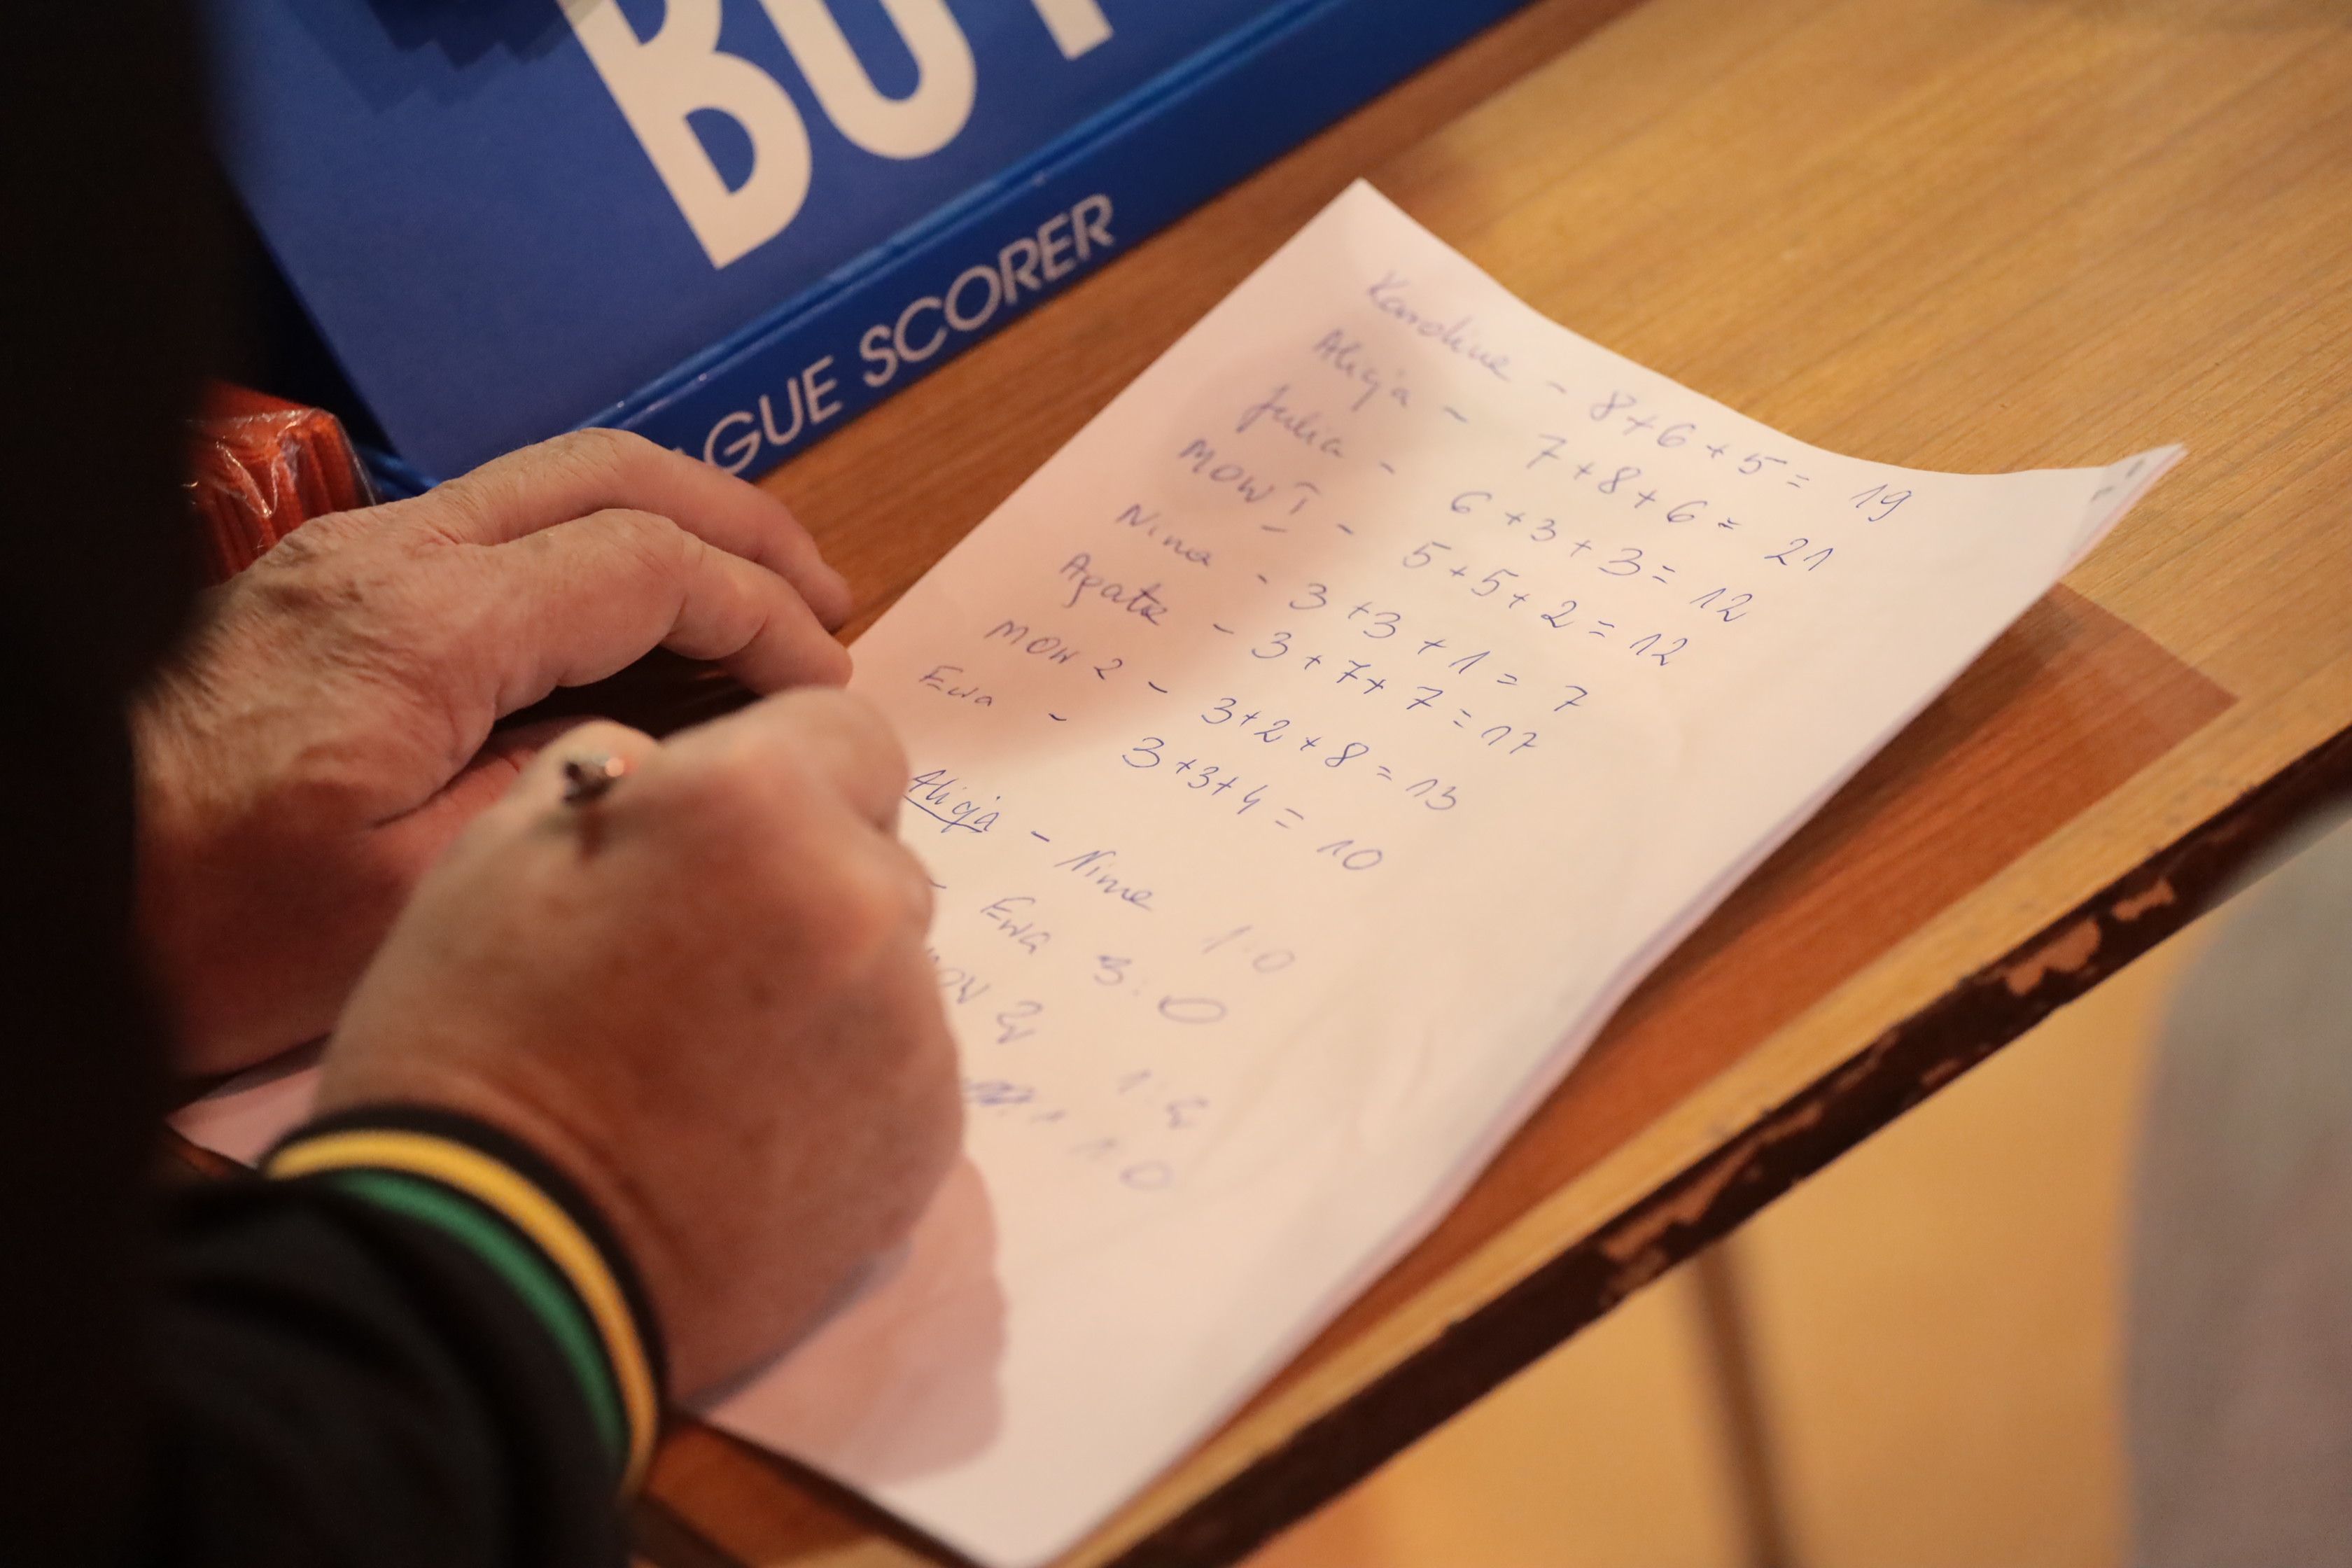 BUT
AGUE SCORER
Karolina - 8+6+5= 19
Alicja - 7+8+6= 21
Julia - 6+3+3= 12
MOW I - 5+5+2= 12
Nina - 3+3+1= 7
Agata - 3+7+7= 17
MOW 2 - 3+2+8= 13
Ewa - 3+3+4= 10
Alicja - Nina 1:0
- Ewa 3:0
MOW 2
1:0